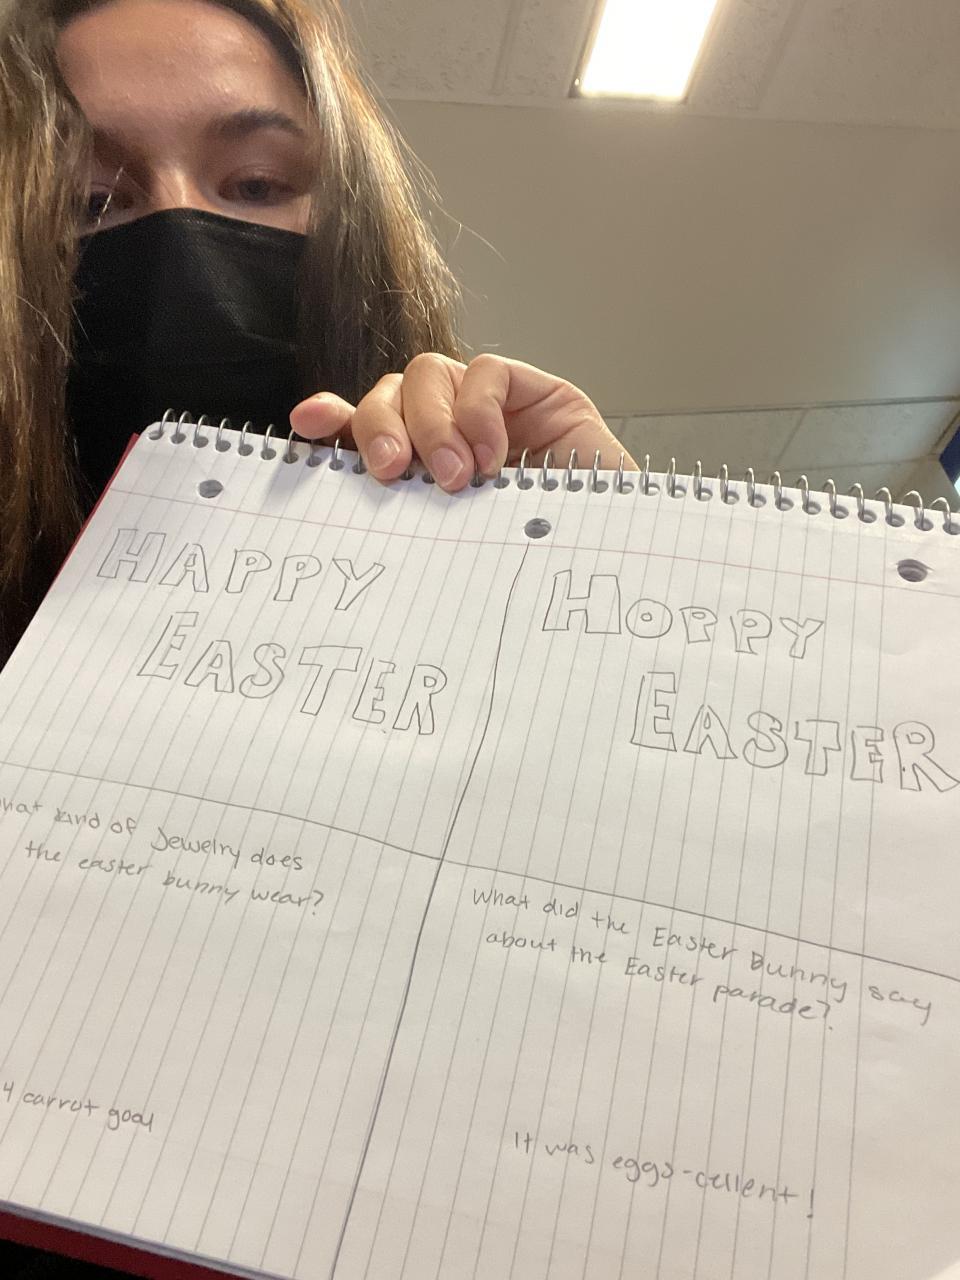 HAPPY
EASTER
HOPPY
EASTER
hat kind of Jewelry does
the easter bunny wear?
4 carrot goal
What did the Easter Bunny say
about the Easter parade?
It was eggs-cellent!